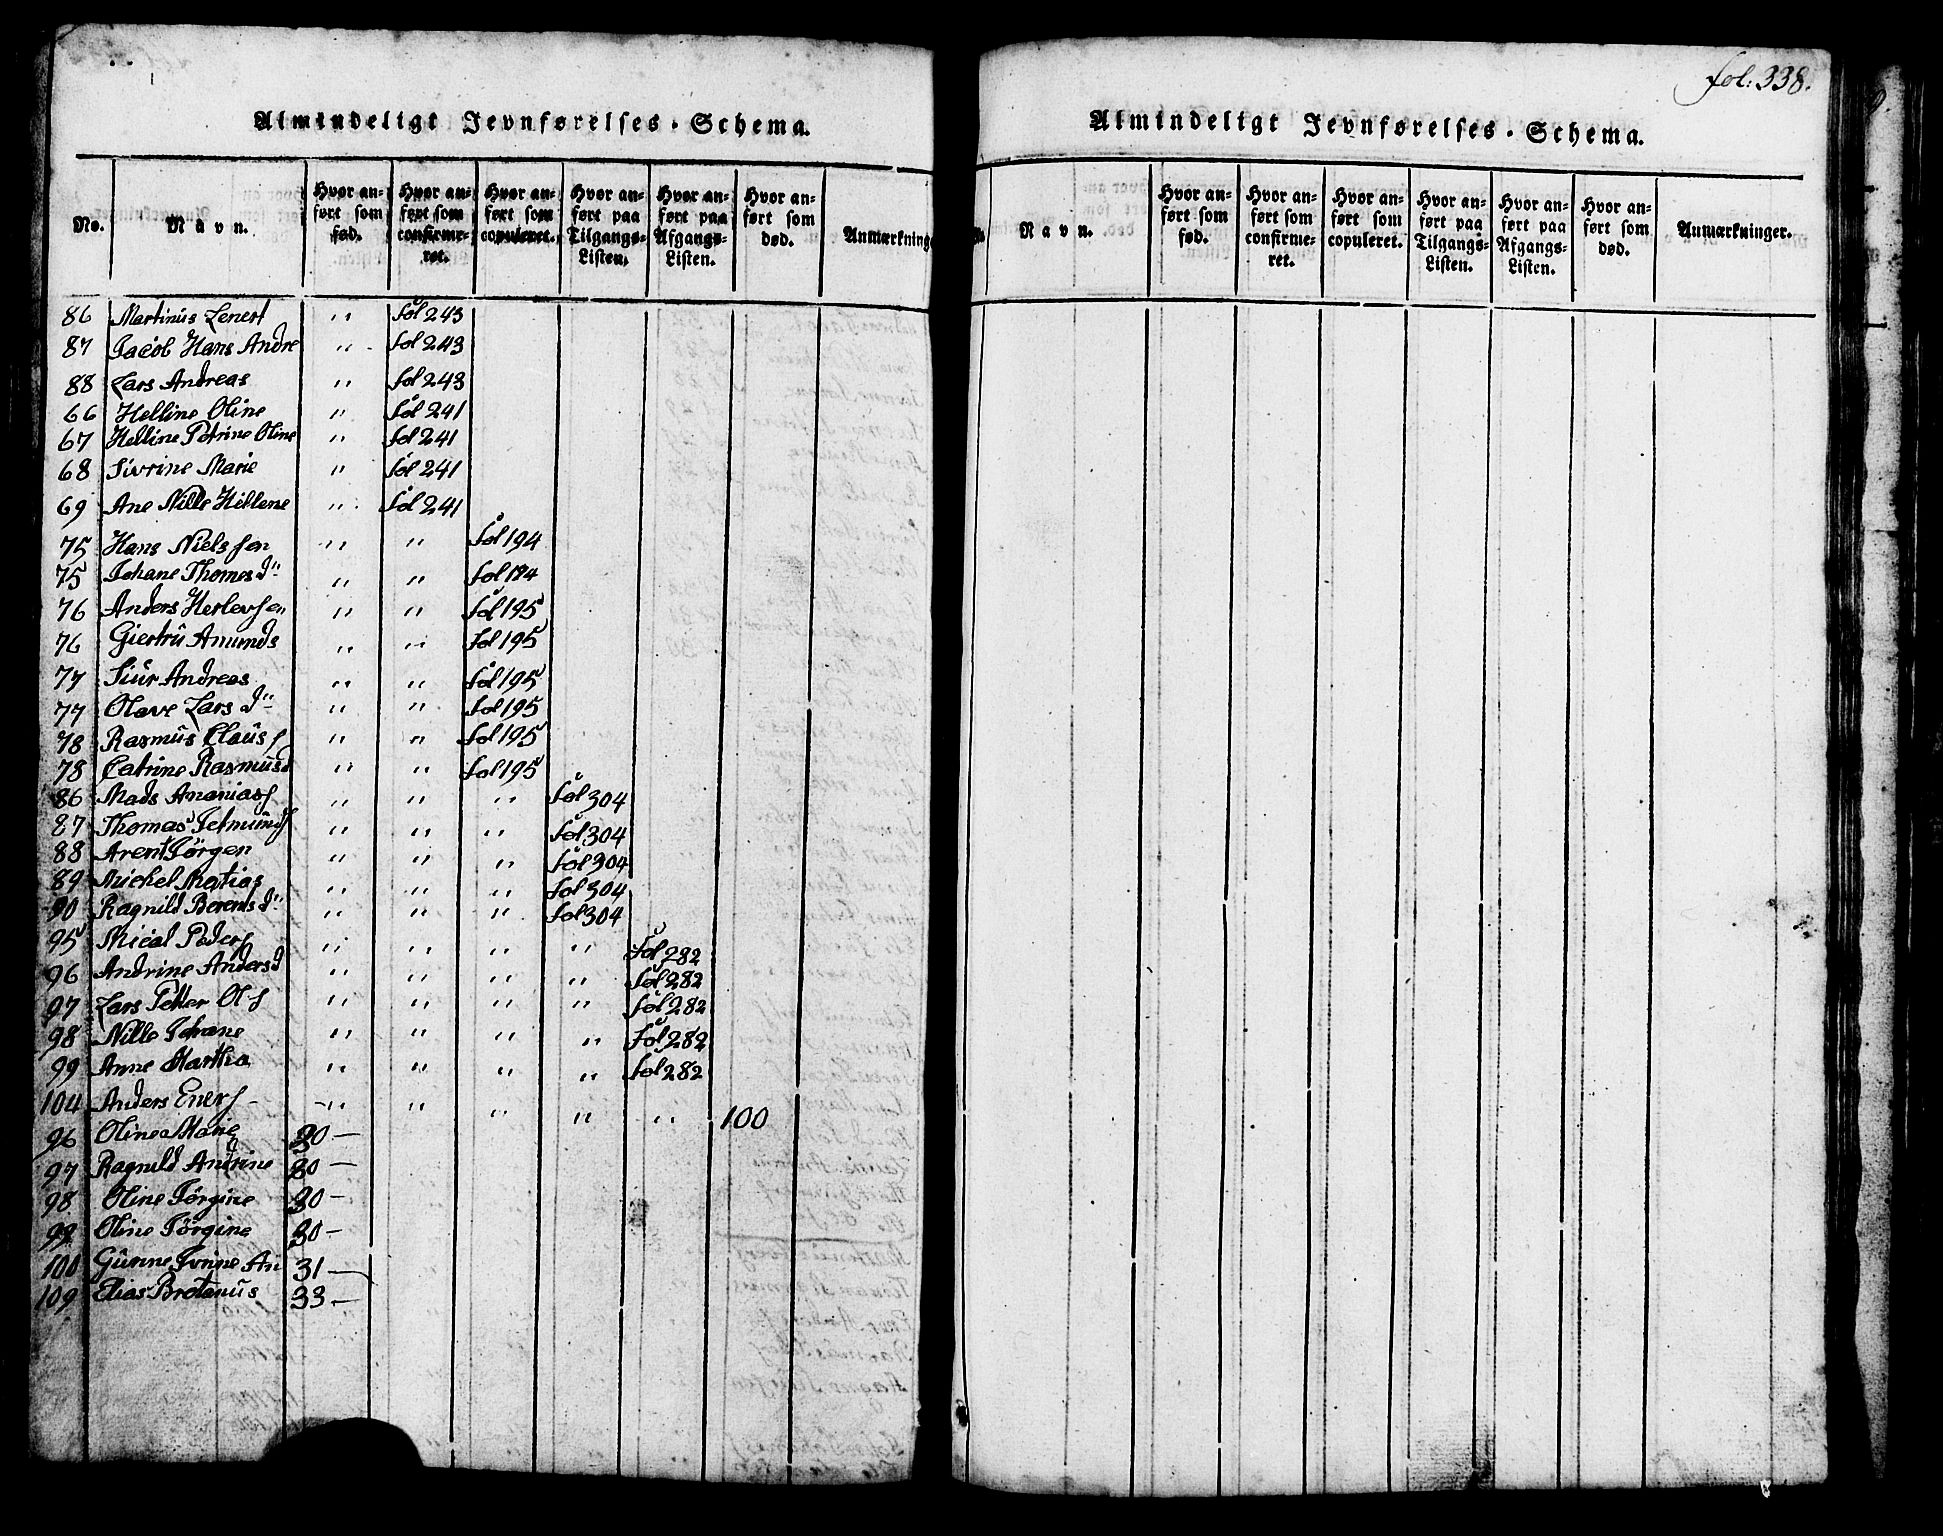 Almindeligt Jevnførelses-Schema.
No. | Navn. | Hvor anført som fød. | Hvor anført som confirmeret. | Hvor anført som copuleret. | Hvor anført paa Tilgangs-Listen. | Hvor anført paa Afgangs-Listen. | Hvor anført som død. | Anmærkninge
86 Martinus Zenert " fol 243
87 Jacob Hans Andre " fol 243
88 Lars Andreas " fol 243
66 Helline Oline " fol 241
67 Helline Petrine Oline " fol 241
68 Sivrine Marie " fol 241
69 Ane Nille Hellene " fol 241
75 Hans Nielssen " " fol 194
75 Johane Thomes d" " " fol 194
76 Anders Herlevsen " " fol 195
76 Giertrü Amunds " " fol 195
77 Siur Andreas " " fol 195
77 Olave Lars d" " " fol 195
78 Rasmus Claus s " " fol 195
78 Catrine Rasmusd " " fol 195
86 Mads Ananias s " " " fol 304
87 Thomas " " " fol 304
88 Arent Jørgen " " " fol 304
89 Mickel Matias " " " fol 304
90 Ragnild Berents d" " " " fol 304
95 Mical Peders " " " " fol 282
96 Andrine Andersd " " " " fol 282
97 Lars Petter Ols " " " " fol 282
98 Nille Johane " " " " fol 282
99 Anne Martha " " " " fol 282
104 Anders Eners - " " " " " 100
96 Olinea Marie 30 —
97 Ragnild Andrine 30 —
98 Oline Jørgine 30 —
99 Oline Jørgine 30 —
100 Gunne An 31 —
109 Elias Brotanus 33 —
fol: 338.
Almindeligt Jevnførelses-Schema.
Navn. | Hvor anført som fød. | Hvor anført som confirmeret. | Hvor anført som copuleret. | Hvor anført paa Tilgangs-Listen. | Hvor anført paa Afgangs-Listen. | Hvor anført som død. | Anmærkninger.